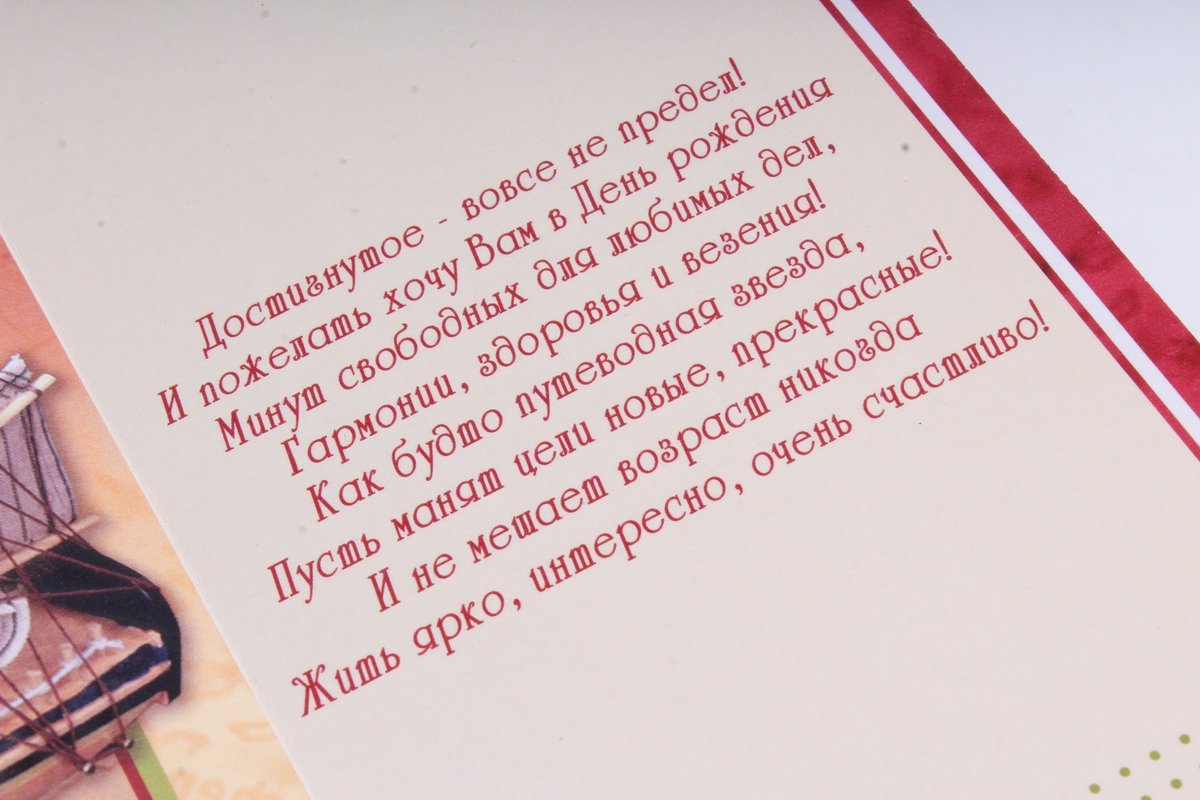 Достигнутое - вовсе не предел!
И пожелать хочу Вам в День рождения
Минут свободных для любимых дел,
Гармонии, здоровья и везения!
Как будто путеводная звезда,
Пусть манят цели новые, прекрасные!
И не мешает возраст никогда
Жить ярко, интересно, очень счастливо!